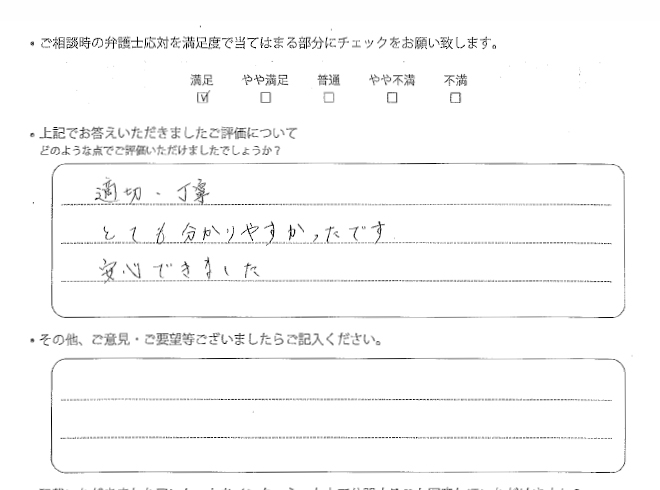 ・ご相談時の弁護士応対を満足度で当てはまる部分にチェックをお願い致します。
満足 やや満足 普通 やや不満 不満
☑ □ □ □ □
・上記でお答えいただきましたご評価について
どのような点でご評価いただけましたでしょうか？
適切・丁寧
とても分かりやすかったです
安心できました
・その他、ご意見・ご要望等ございましたらご記入ください。